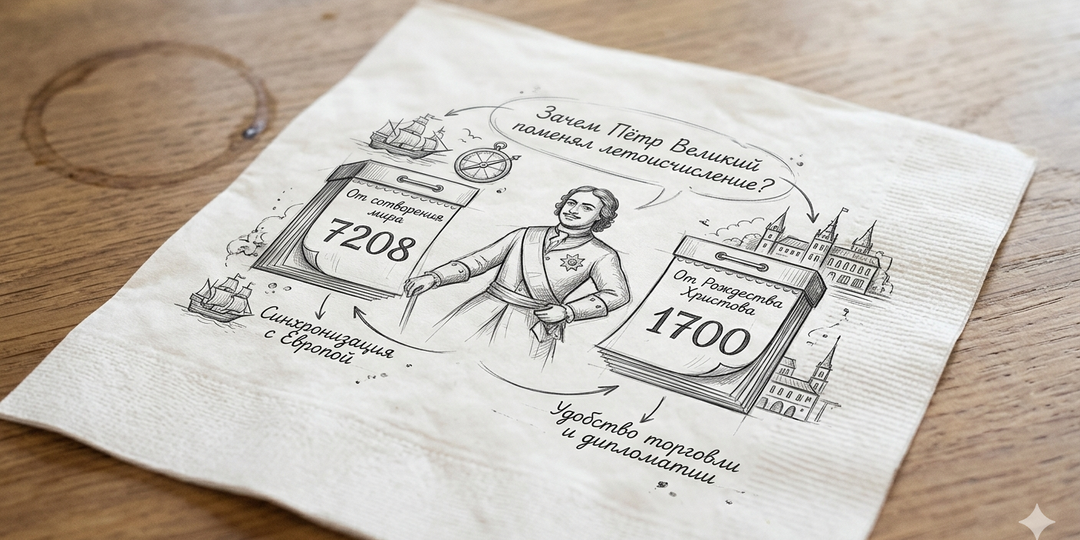 Зачем Пётр Великий
поменял летоисчисление?
От сотворения
мира
7208
От Рождества
Христова
1700
Синхронизация
с Европой
Удобство торговли
и дипломатии